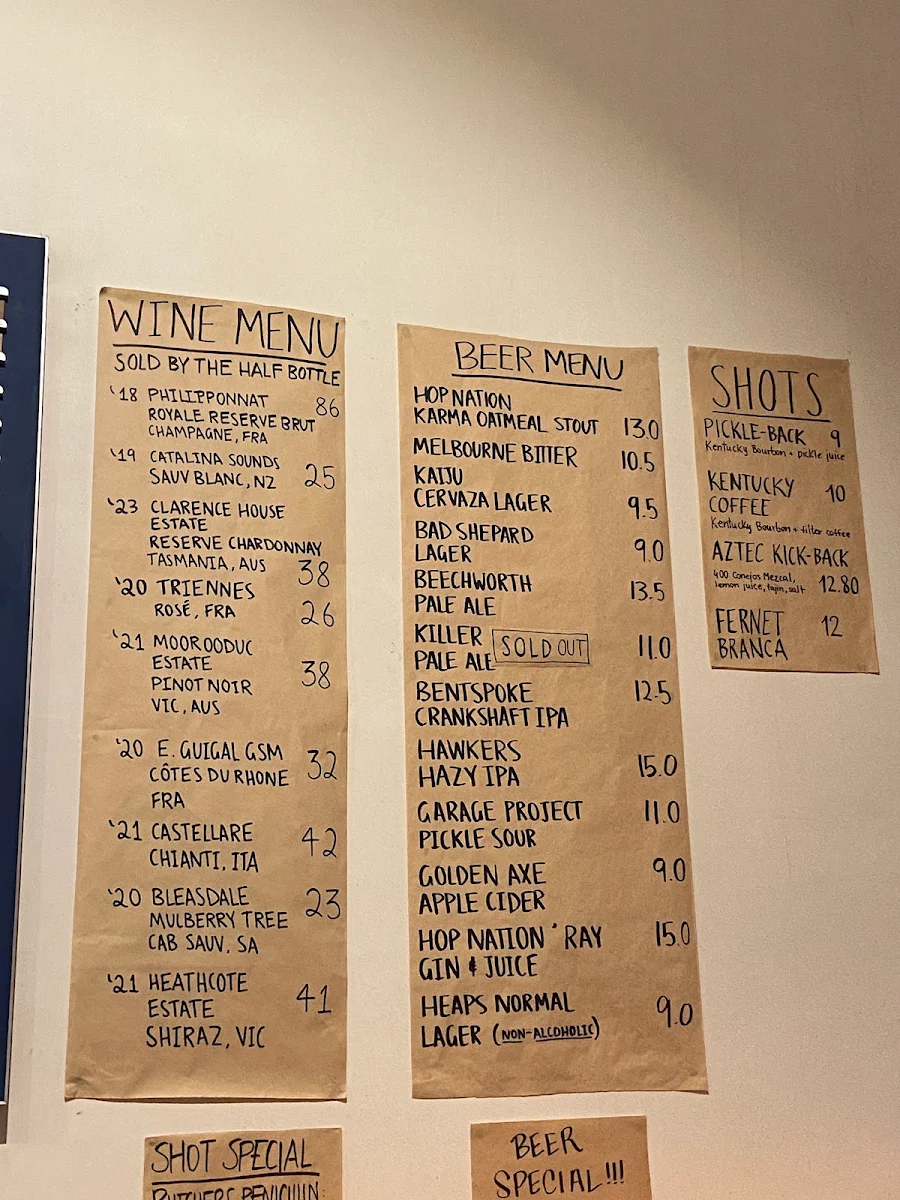 WINE MENU
SOLD BY THE HALF BOTTLE
'18 PHILIPPONNAT 86
ROYALE RESERVE BRUT
CHAMPAGNE, FRA
'19 CATALINA SOUNDS
SAUV BLANC, NZ 25
'23 CLARENCE HOUSE
ESTATE
RESERVE CHARDONNAY
TASMANIA, AUS 38
'20 TRIENNES
ROSÉ, FRA 26
'21 MOOROODUC
ESTATE
PINOT NOIR 38
VIC, AUS
'20 E. GUIGAL GSM
CÔTES DU RHONE 32
FRA
'21 CASTELLARE
CHIANTI, ITA 42
'20 BLEASDALE
MULBERRY TREE 23
CAB SAUV. SA
'21 HEATHCOTE
ESTATE 41
SHIRAZ, VIC
BEER MENU
HOP NATION
KARMA OATMEAL STOUT 13.0
MELBOURNE BITTER 10.5
KAIJU
CERVAZA LAGER 9.5
BAD SHEPARD
LAGER 9.0
BEECHWORTH
PALE ALE 13.5
KILLER
PALE ALE SOLD OUT 11.0
BENTSPOKE 12.5
CRANKSHAFT IPA
HAWKERS
HAZY IPA 15.0
GARAGE PROJECT 11.0
PICKLE SOUR
GOLDEN AXE 9.0
APPLE CIDER
HOP NATION ' RAY 15.0
GIN & JUICE
HEAPS NORMAL 9.0
LAGER (NON-ALCOHOLIC)
SHOTS
PICKLE-BACK 9
Kentucky Bourbon + pickle juice
KENTUCKY 10
COFFEE
Kentucky Bourbon + filter coffee
AZTEC KICK-BACK
400 Conejos Mezcal,
lemon juice, tajin, salt 12.80
FERNET 12
BRANCA
SHOT SPECIAL
BUTCHERS PENICILLIN:
BEER
SPECIAL!!!